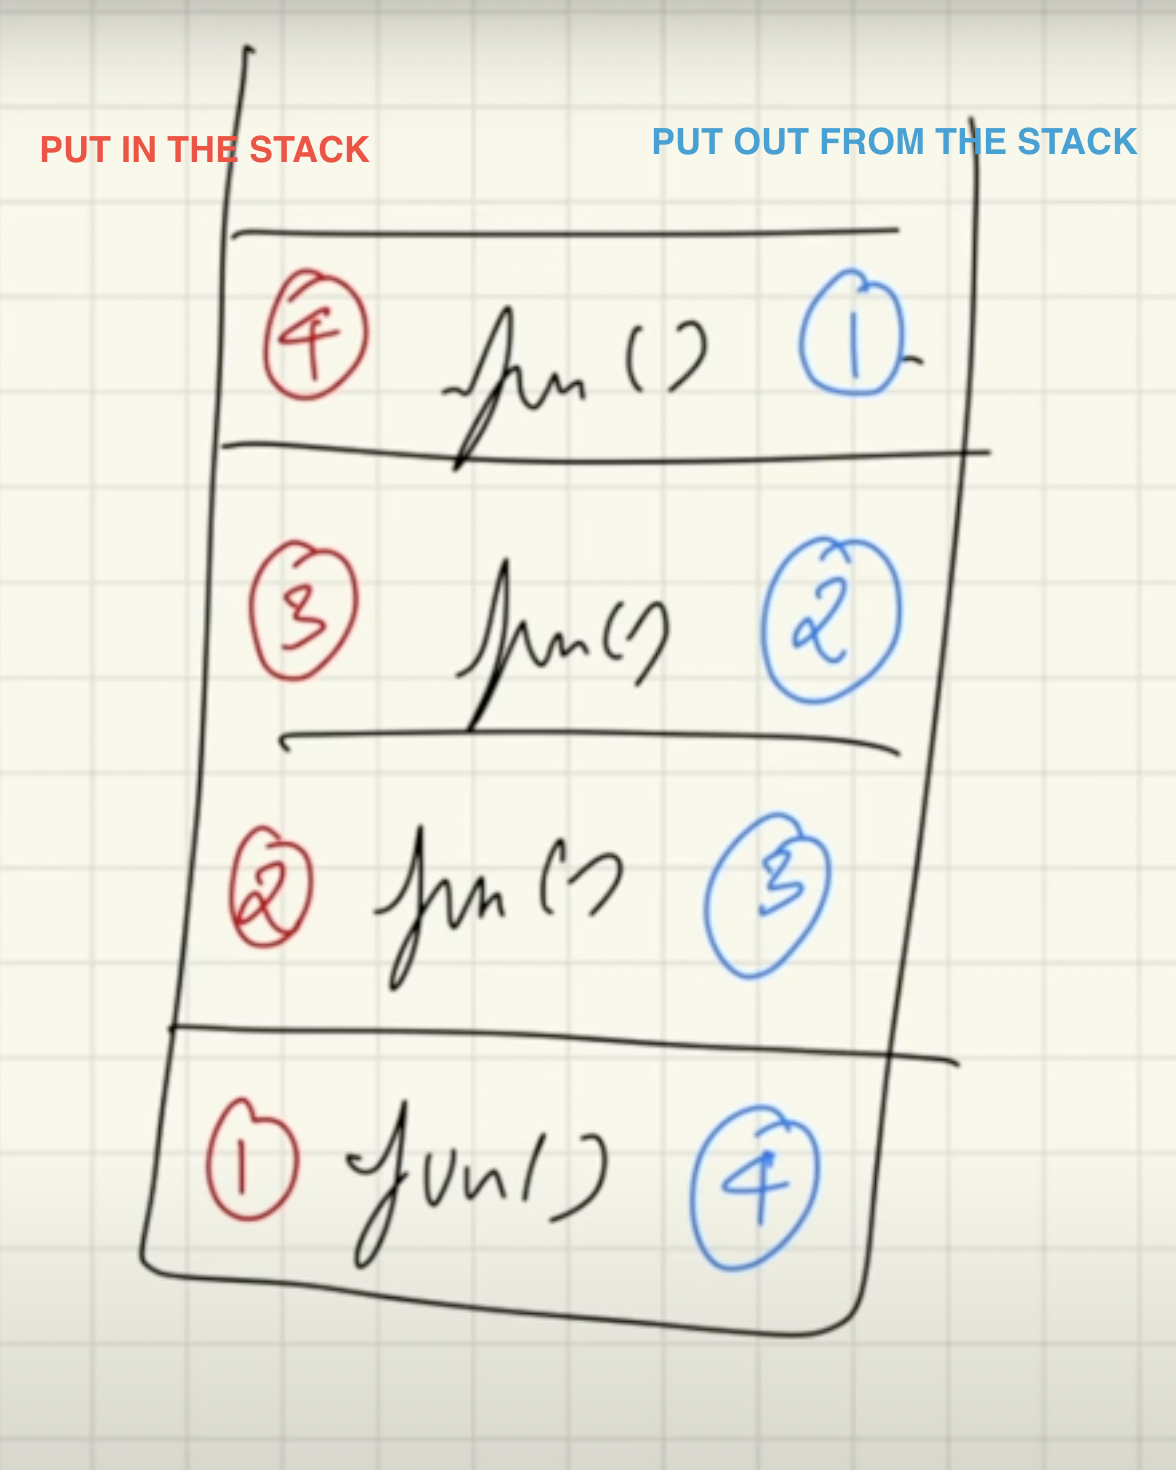 PUT IN THE STACK PUT OUT FROM THE STACK
4 fun() 1
3 fun() 2
2 fun() 3
1 fun() 4